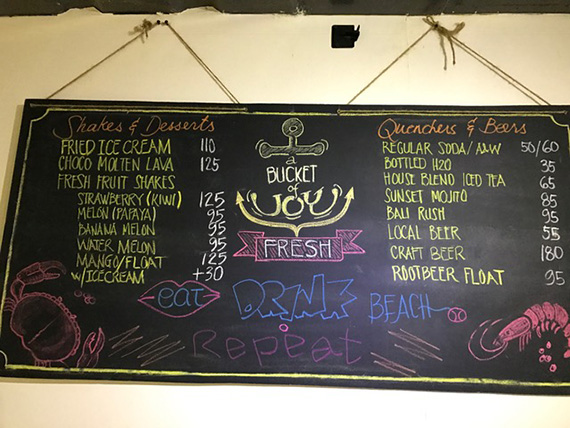 Shakes & Desserts
FRIED ICE CREAM 110
CHOCO MOLTEN LAVA 125
FRESH FRUIT SHAKES
STRAWBERRY (KIWI) 125
MELON (PAPAYA) 95
BANANA MELON 95
WATER MELON 95
MANGO/FLOAT 125
W/ICECREAM +30
a
BUCKET
of
JOY
FRESH
Quenchers & Beers
REGULAR SODA/A&W 50/60
BOTTLED H2O 35
HOUSE BLEND ICED TEA 65
SUNSET MOJITO 85
BALI RUSH 95
LOCAL BEER 55
CRAFT BEER 180
ROOTBEER FLOAT 95
eat DRINK BEACH
Repeat